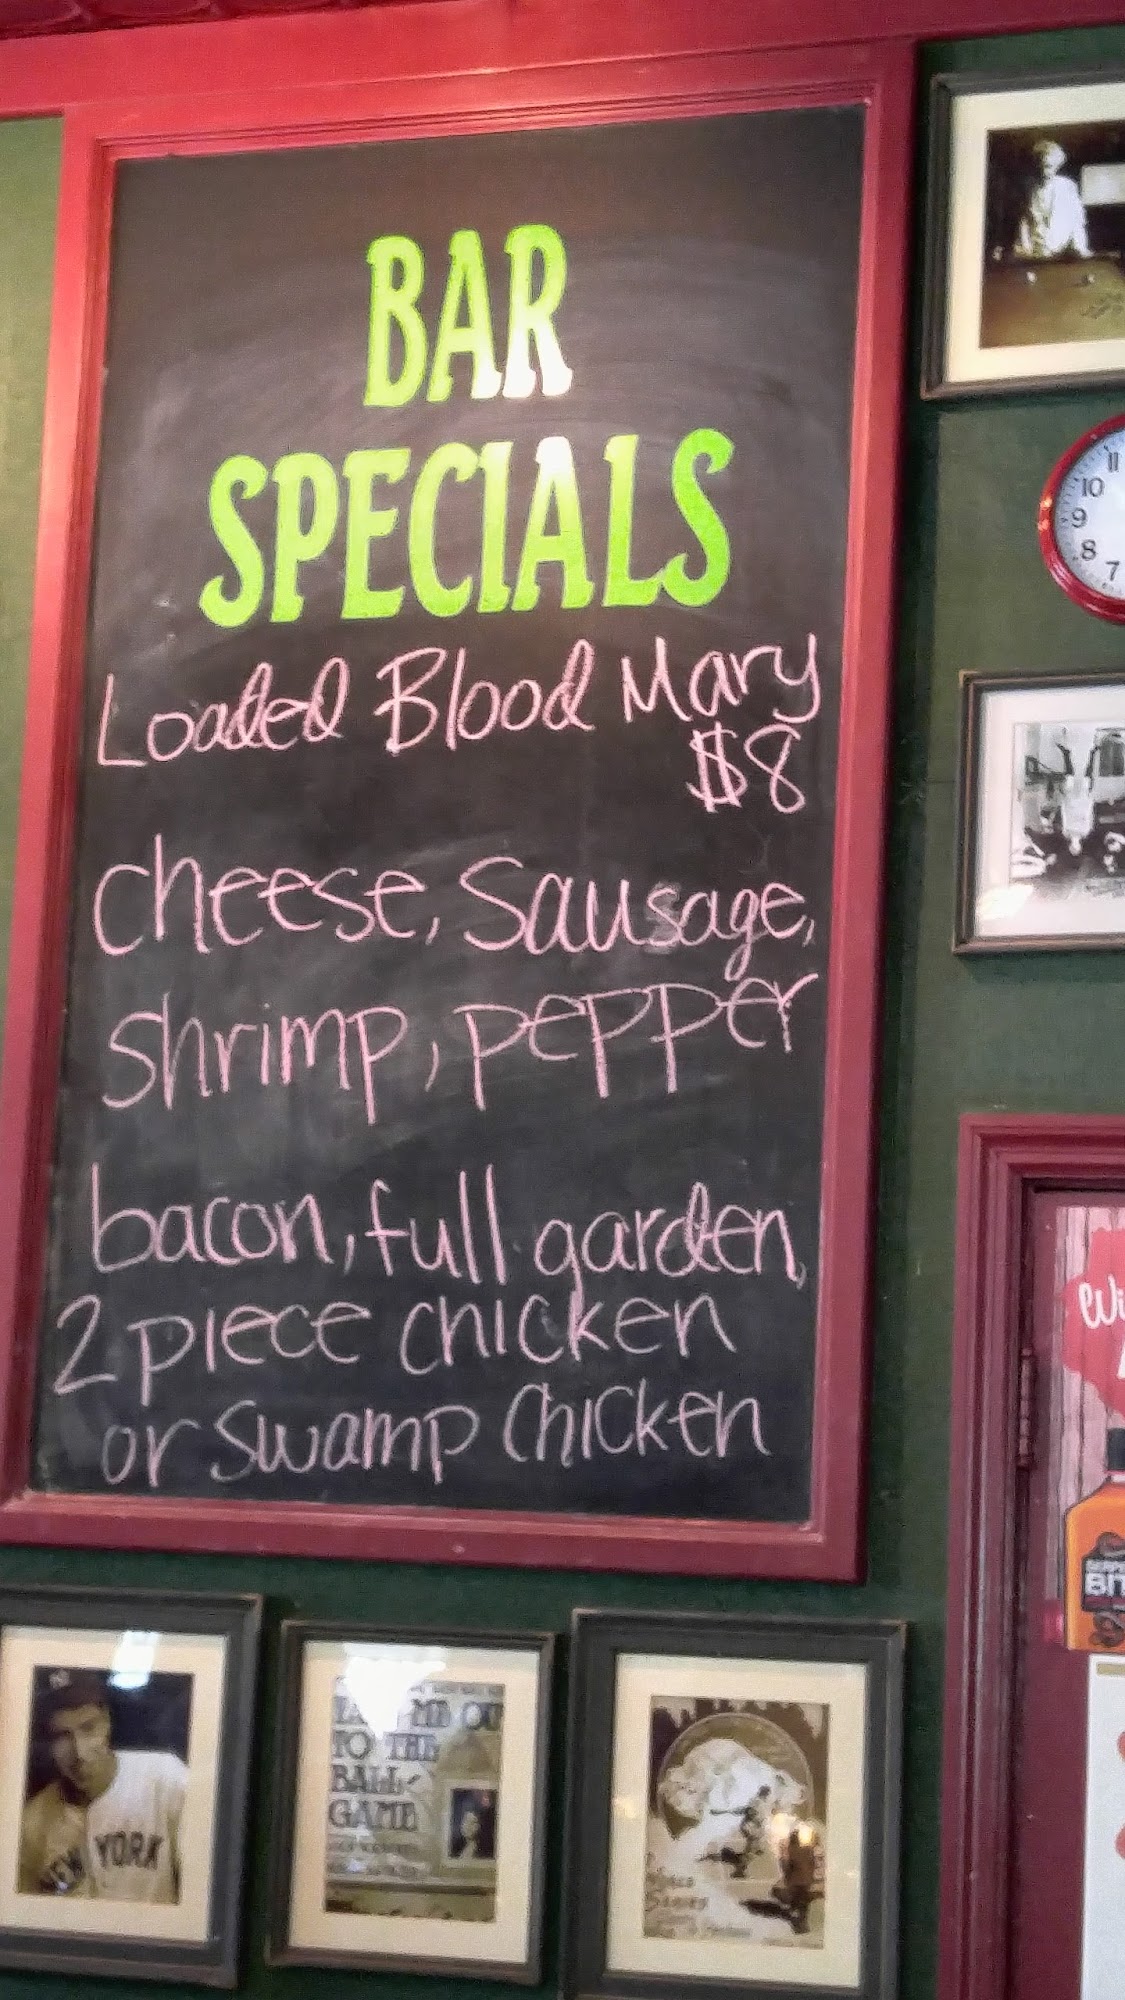 BAR
SPECIALS
Loaded Blood Mary
$8
cheese, Sausage,
shrimp, pepper
bacon, full garden,
2 piece chicken
or swamp chicken
11
10
9
8
7
NEW YORK
ME
TO THE
BALL
GAME